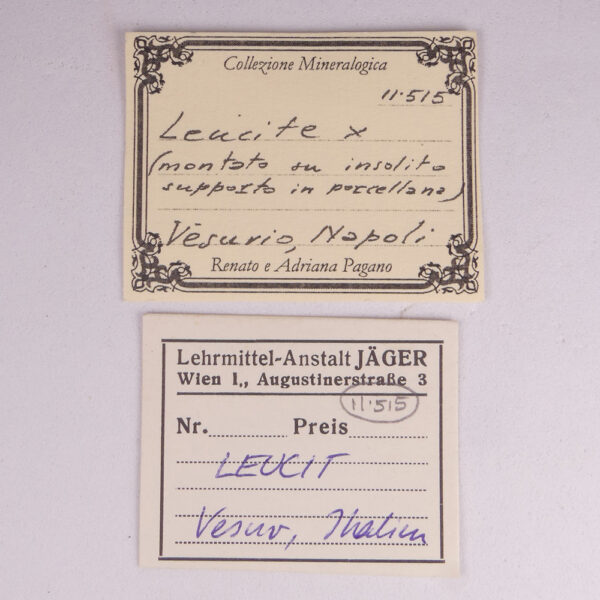 Collezione Mineralogica
11.515
Leucite x
(montato su insolito
supporto in porcellana)
Vesuvio, Napoli
Renato e Adriana Pagano
Lehrmittel-Anstalt JÄGER
Wien I., Augustinerstraße 3
11.515
Nr. Preis
LEUCIT
Vesuv, Italien